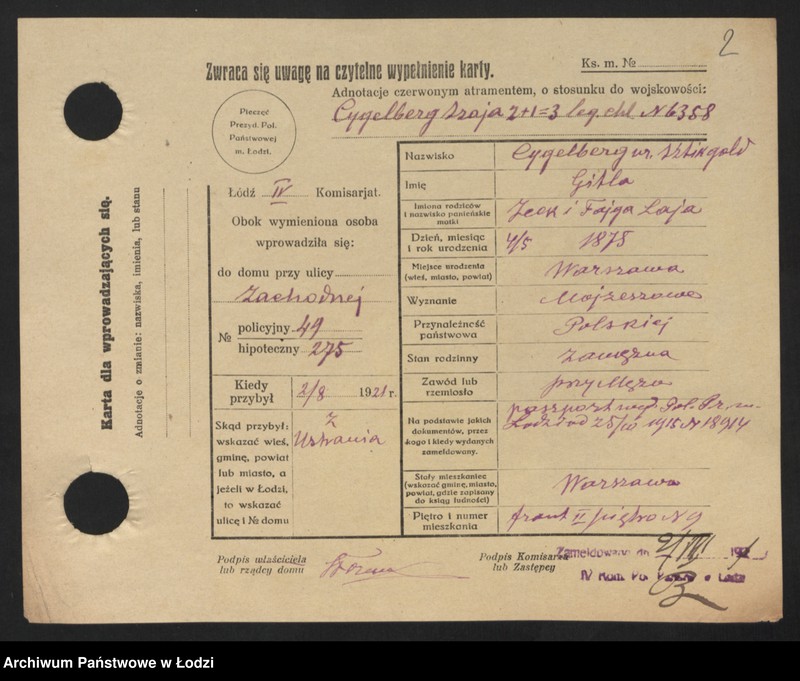 2
Zwraca się uwagę na czytelne wypełnienie karty.
Ks. m. №
Adnotacje czerwonym atramentem, o stosunku do wojskowości:
Cygelberg Szaja 2+1=3 leg. chl N 6358
Pieczęć
Prezyd. Pol.
Państwowej
m. Łodzi.
Łódź IV Komisarjat.
Obok wymieniona osoba
wprowadziła się:
do domu przy ulicy
Zachodniej
№ policyjny 49
hipoteczny 275
Kiedy przybył 2/8 1921 r.
Skąd przybył:
wskazać wieś,
gminę, powiat
lub miasto, a
jeżeli w Łodzi,
to wskazać
ulicę i № domu
z
Nazwisko Cygelberg ur. Sztikgold
Imię Gitla
Imiona rodziców
i nazwisko panieńskie
matki
Icek i Fajga Laja
Dzień, miesiąc
i rok urodzenia
4/5 1875
Miejsce urodzenia
(wieś, miasto, powiat)
Warszawa
Wyznanie Mojżeszowe
Przynależność
państwowa
Polskiej
Stan rodzinny zamężna
Zawód lub
rzemiosło
przy Mężu
Na podstawie jakich
dokumentów, przez
kogo i kiedy wydanych
zameldowany.
paszport Pol. Pr. m.
Łodzi od 25/
Stały mieszkaniec
(wskazać gminę, miasto,
powiat, gdzie zapisany
do ksiąg ludności)
Warszawa
Piętro i numer
mieszkania
front II piętro N 9
Podpis właściciela
lub rządcy domu
Podpis Komisarza
lub Zastępcy
Zameldowano dn. 2/VIII 1921
IV Kom. Pol. Państw. w Łodzi
Karta dla wprowadzających się.
Adnotacje o zmianie: nazwiska, imienia, lub stanu
Archiwum Państwowe w Łodzi